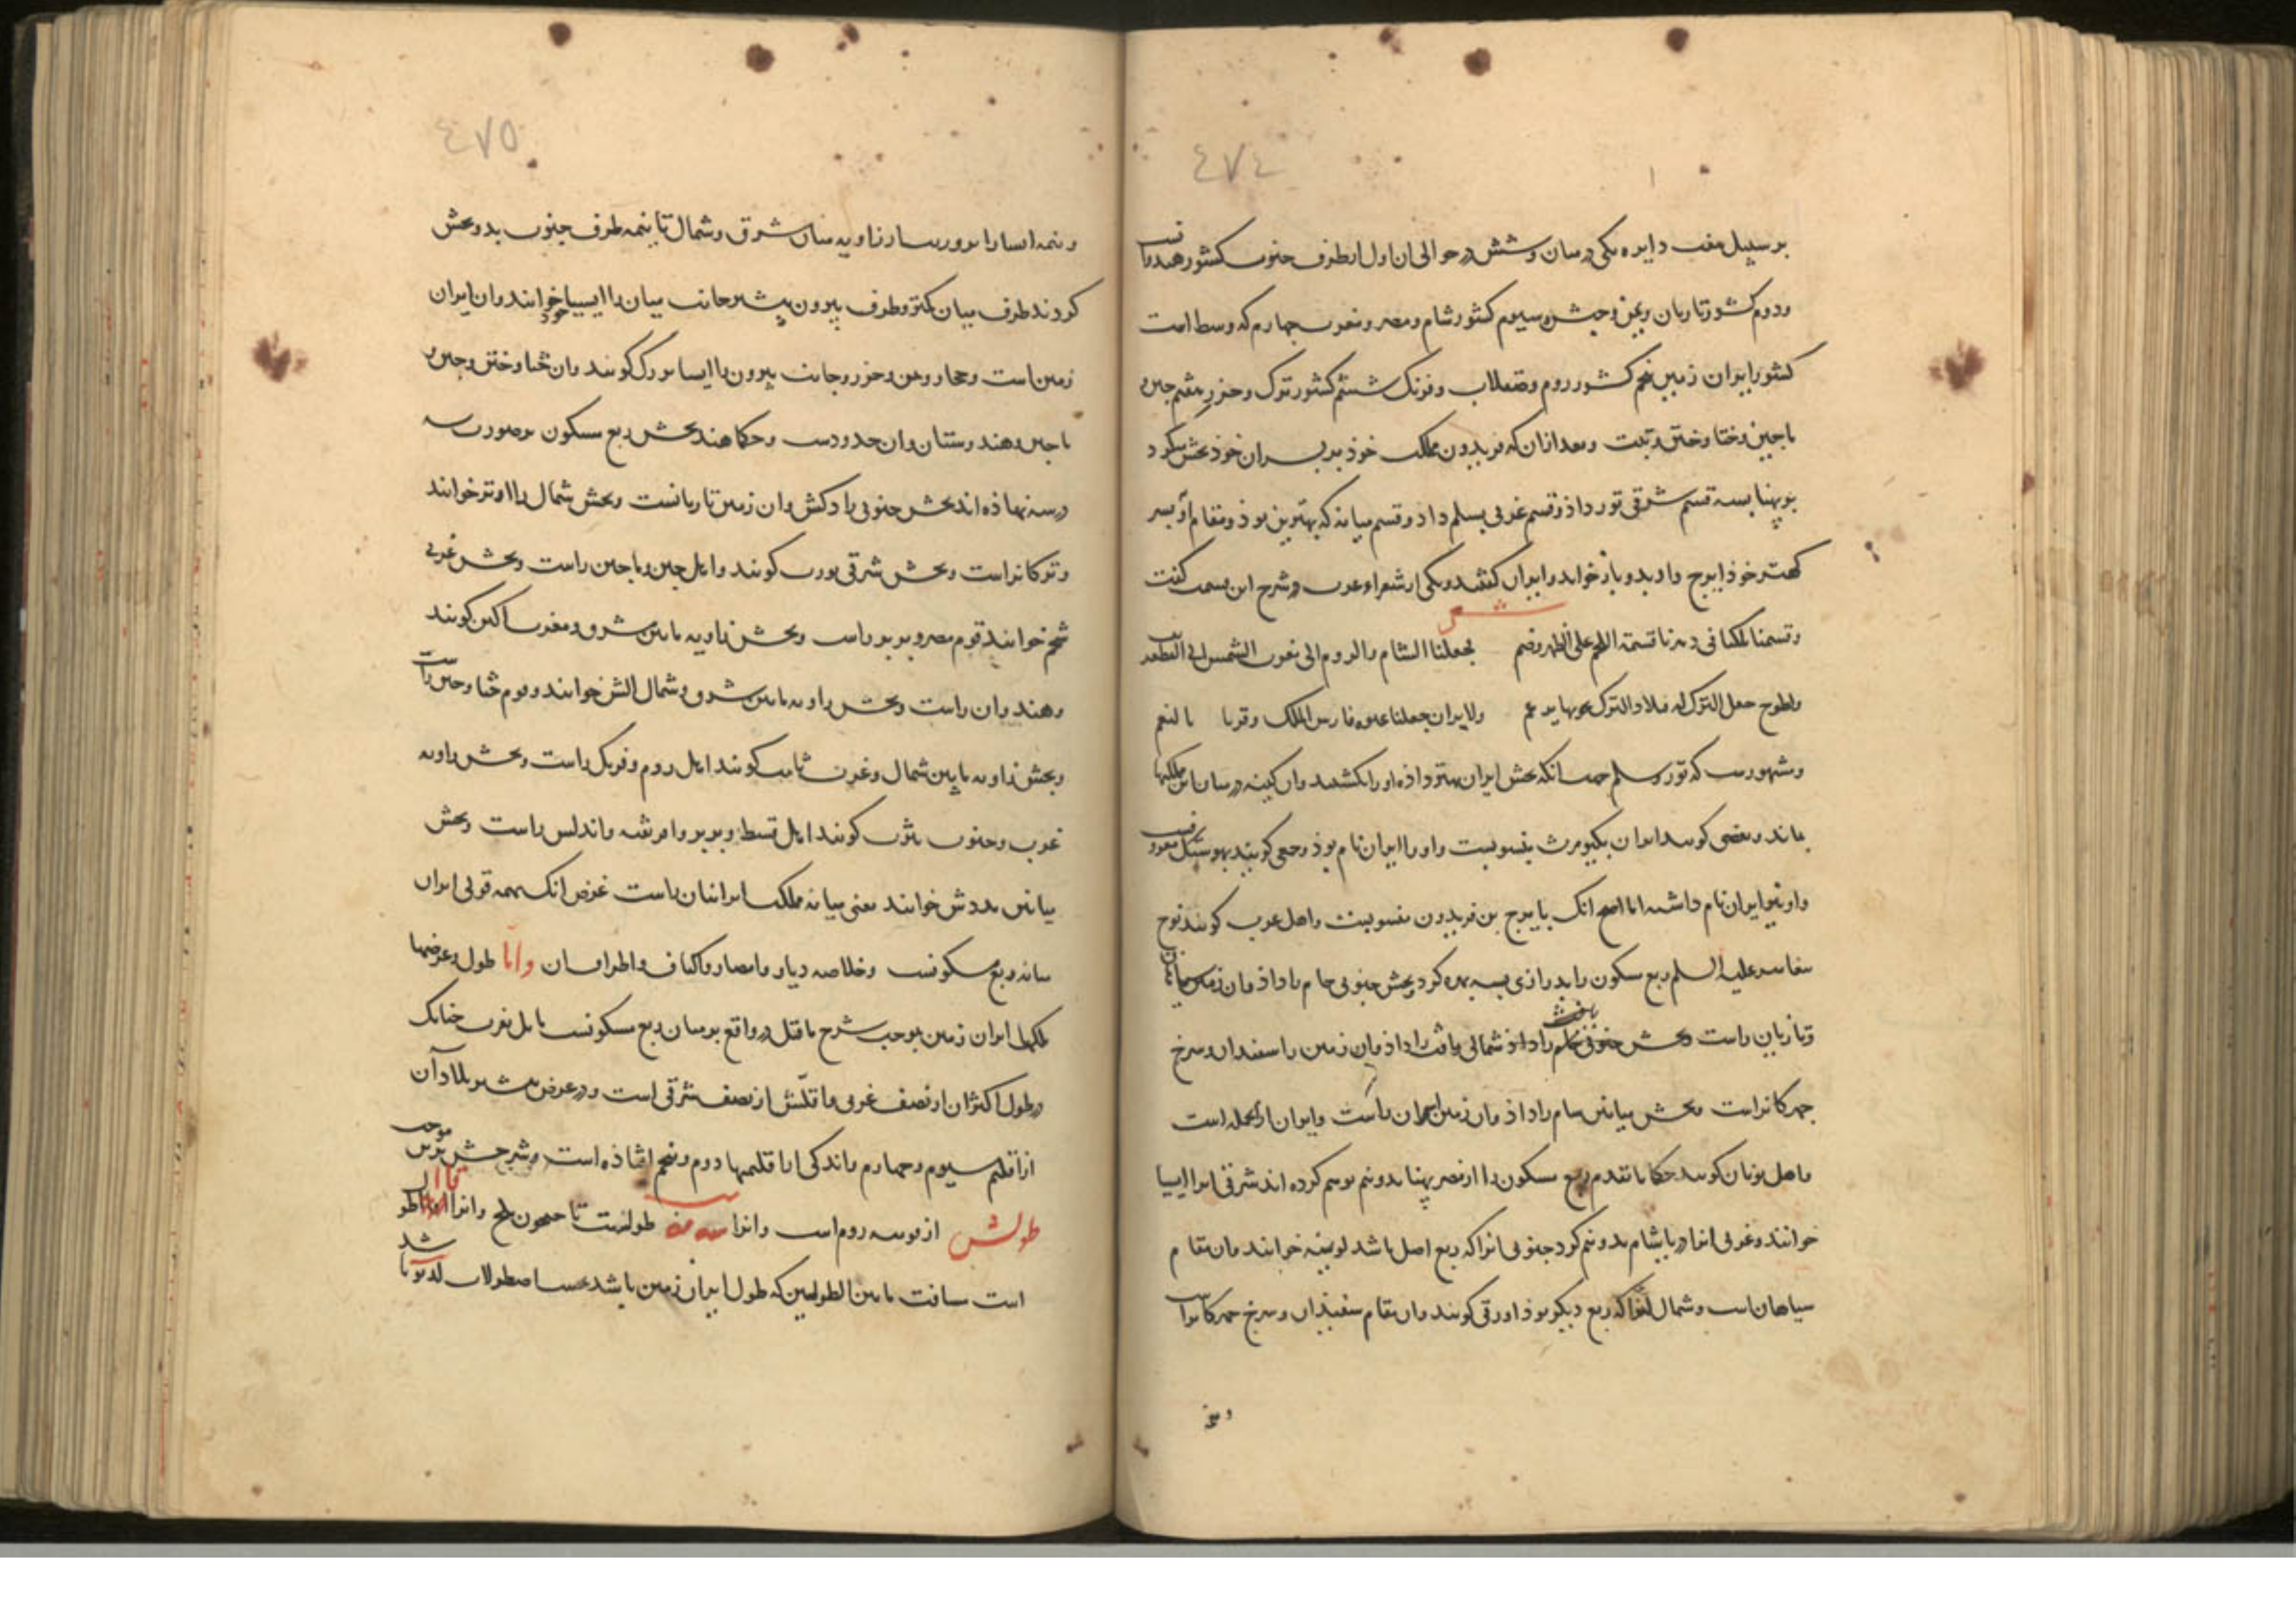 ٤٧٤
بر سبیل هفت دایره یکی در میان و شش در حوالی ان اول از طرف جنوب کشور هندوانست
ودوم کشور تازیان ویمن وحبش وسیوم کشور شام ومصر ومغرب چهارم که وسط است
کشور ایران زمین پنجم کشور روم وصقلاب وفرنک ششم کشور ترک وخزر هفتم چین و
ماچین وختا وختن وتبت وبعد ازان که فریدون مملکت خوذ بر پسران خوذ بخش میکرد
بر پهنا بسه قسم شرقی بتور داذ وقسم غربی بسلم داد وقسم میانه که بهترین بوذ ومقام او بپسر
کهتر خوذ ایرج داد وبدو بازخواند وایران کفتند ویکی از شعراء عرب در شرح این قسمت کفت
شعر
وقسمنا ملکنا فی دهرنا قسمة اللحم علی ظهر وضم فجعلنا الشام والروم الی مغرب الشمس الی
ولطوج جعل الترک له فبلاد الترک یحویها برغم ولایران جعلنا عنوة فارس الملک وفزنا بالنعم
ومشهورست که تور وسلم جهت انکه بخش ایران بهتر داذه او را بکشتند وان کینه در میان این ملکها
بماند وبعضی کویند ایران بکیومرث منسوبست واو را ایران نام بوذ وجمعی کویند بهوشنک منسوبست
واو نیز ایران نام داشت اما اصح انک بایرج بن فریدون منسوبست واهل عرب کویند نوح
پیغامبر علیه السلم ربع مسکون را بدرازی بسه بهره کرد وبخش جنوبی حام را داذ وان زمین سیاهان
وتازیان راست وبخش شمالی یافث را داذ وان زمین را سفیدان وسرخ
چهرکانراست وبخش میانین سام را داذ وان زمین اسمران راست وایران از انجمله است
واهل یونان کویند حکماء ما تقدم ربع مسکون را از مصر پهنا بدو نیم توهم کرده اند شرقی انرا ایسیا
خوانند وغربی انرا دریا شام بدو نیم کرد جنوبی انرا که ربع اصل باشد لوبیه خوانند وان مقام
سیاهان است وشمال انرا که ربع دیکر بوذ اورقی کویند وان مقام سفیدان وسرخ چهرکانراست
ونیمه
٤٧٥
ونیمه ایسیا را بدو زاویه میان شرق وشمال تا نیمه طرف جنوب بدو بخش
کردند طرف میان کمتر وطرف بیرون بیشتر جانب میان را ایسیا خرد خوانند وان ایران
زمین است وحجاز ویمن وخزر وجانب بیرون را ایسیا بزرک کویند وان ختا وختن وچین و
ماچین وهندوستان وان حدودست وحکماء هند بخش ربع مسکون بر صورت سه
در سه نهاذه اند بخش جنوبی را دکشن وان زمین تازیانست وبخش شمال را اوتر خوانند
وترکانراست وبخش شرقی پورب کویند واهل چین وماچین راست وبخش غربی
پچم خوانند قوم مصر وبربر راست وبخش زاویه مابین شرق وجنوب اکن کویند
وهندوان راست وبخش زاویه مابین شرق وشمال ایش خوانند وقوم ختا وختن راست
وبخش زاویه مابین شمال وغرب بایب کویند اهل روم وفرنک راست وبخش زاویه
غرب وجنوب نیرت کویند اهل قبط وبربر وافریقیه واندلس راست وبخش
میانین مددش خوانند یعنی میانه مملکت ایرانیان راست غرض انک بهمه قولی ایران
میانه ربع مسکونست وخلاصه دیار وامصار واکناف واطراف ان واما طول وعرضها
ملک ایران زمین بموجب شرح ما قبل در واقع بر میان ربع مسکونست مایل بغرب چنانک
در طول اکثر ان از نصف غربی واقلش از نصف شرقی است ودر عرض بیشتر بلاد آن
از اقلیم سیوم وچهارم واندکی از اقلیمهاء دوم وپنجم افتاذه است وشرحش برین موجب
طولش از قونیه روم است وانرا طولست تا جیحون بلخ وانرا طول
است مسافت مابین الطولین که طول ایران زمین باشد بحساب اصطرلاب